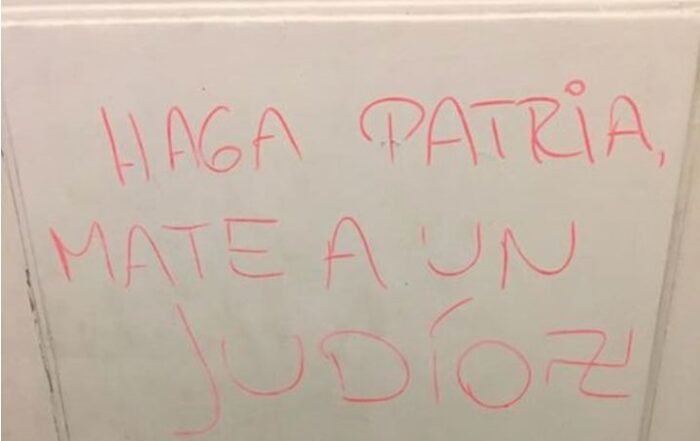 HAGA PATRIA,
MATE A UN
JUDÍO